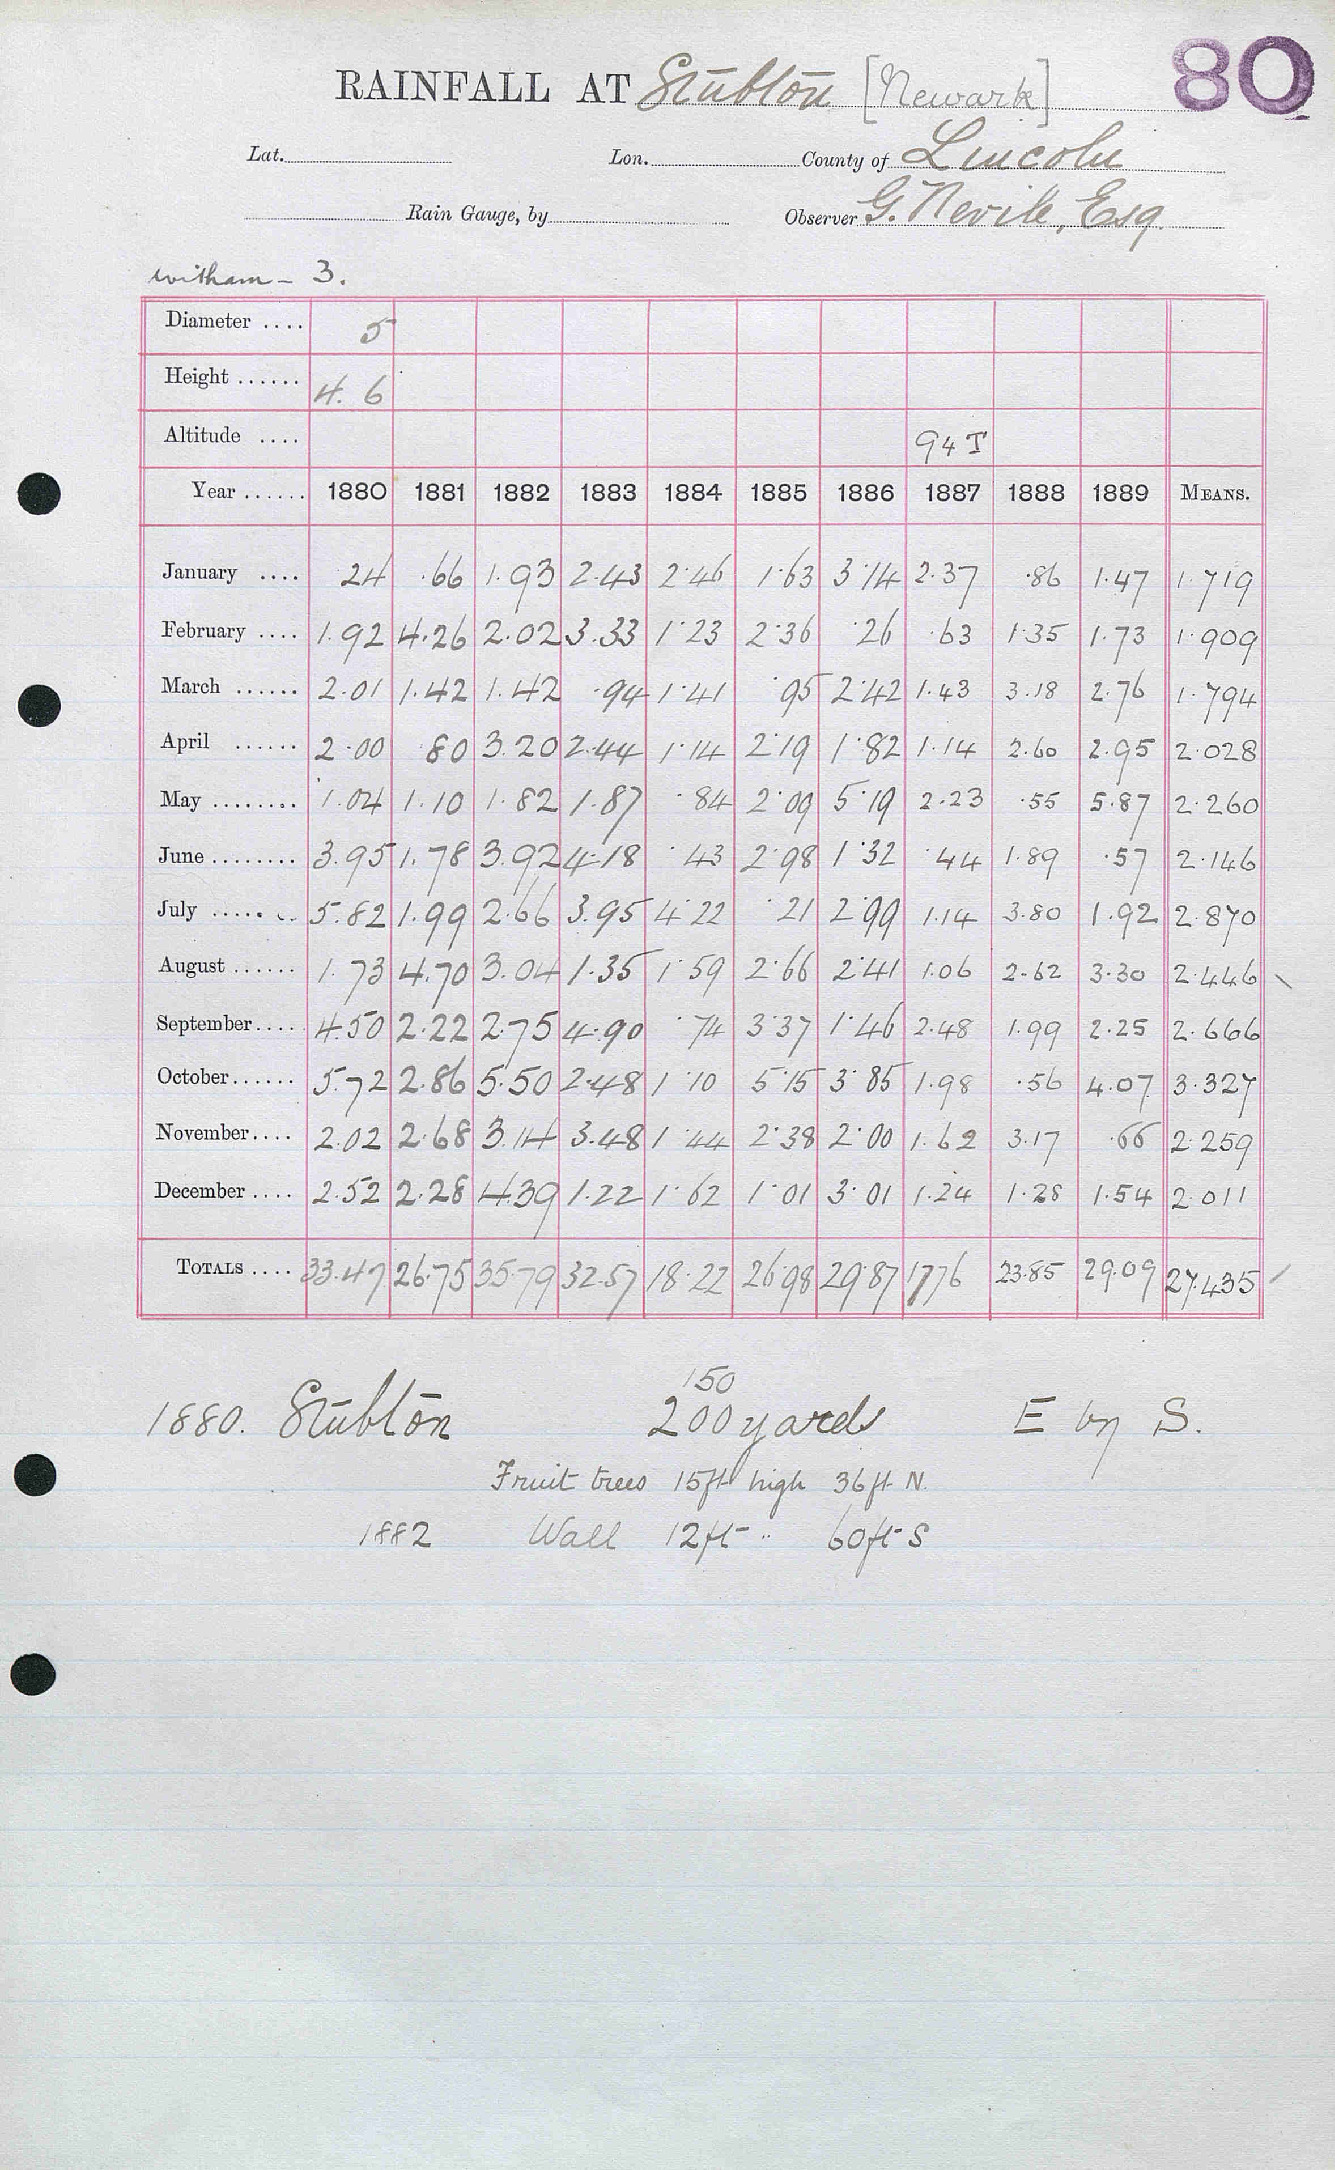 80
RAINFALL AT Stubton [Newark]
Lat. Lon. County of Lincoln
Rain Gauge, by Observer G. Nevile, Esq.
Witham - 3.
Diameter .... 5
Height ...... 4. 6
Altitude .... 94 T
Year ...... 1880 1881 1882 1883 1884 1885 1886 1887 1888 1889 MEANS.
January .... .24 .66 1.93 2.43 2.46 1.63 3.14 2.37 .86 1.47 1.719
February .... 1.92 4.26 2.02 3.33 1.23 2.36 .26 .63 1.35 1.73 1.909
March ...... 2.01 1.42 1.42 .94 1.41 .95 2.42 1.43 3.18 2.76 1.794
April ...... 2.00 .80 3.20 2.44 1.14 2.19 1.82 1.14 2.60 2.95 2.028
May ........ 1.04 1.10 1.82 1.87 .84 2.09 5.19 2.23 .55 5.87 2.260
June ........ 3.95 1.78 3.92 4.18 .43 2.98 1.32 .44 1.89 .57 2.146
July ........ 5.82 1.99 2.66 3.95 4.22 .21 2.99 1.14 3.80 1.92 2.870
August ...... 1.73 4.70 3.04 1.35 1.59 2.66 2.41 1.06 2.62 3.30 2.446
September.... 4.50 2.22 2.75 4.90 .74 3.37 1.46 2.48 1.99 2.25 2.666
October...... 5.72 2.86 5.50 2.48 1.10 5.15 3.85 1.98 .56 4.07 3.327
November.... 2.02 2.68 3.14 3.48 1.44 2.38 2.00 1.62 3.17 .66 2.259
December .... 2.52 2.28 4.39 1.22 1.62 1.01 3.01 1.24 1.28 1.54 2.011
TOTALS .... 33.47 26.75 35.79 32.57 18.22 26.98 29.87 17.76 23.85 29.09 27.435
150
1880. Stubton 200 yards E by S.
Fruit trees 15ft high 36ft N.
1882 Wall 12ft " 60ft S